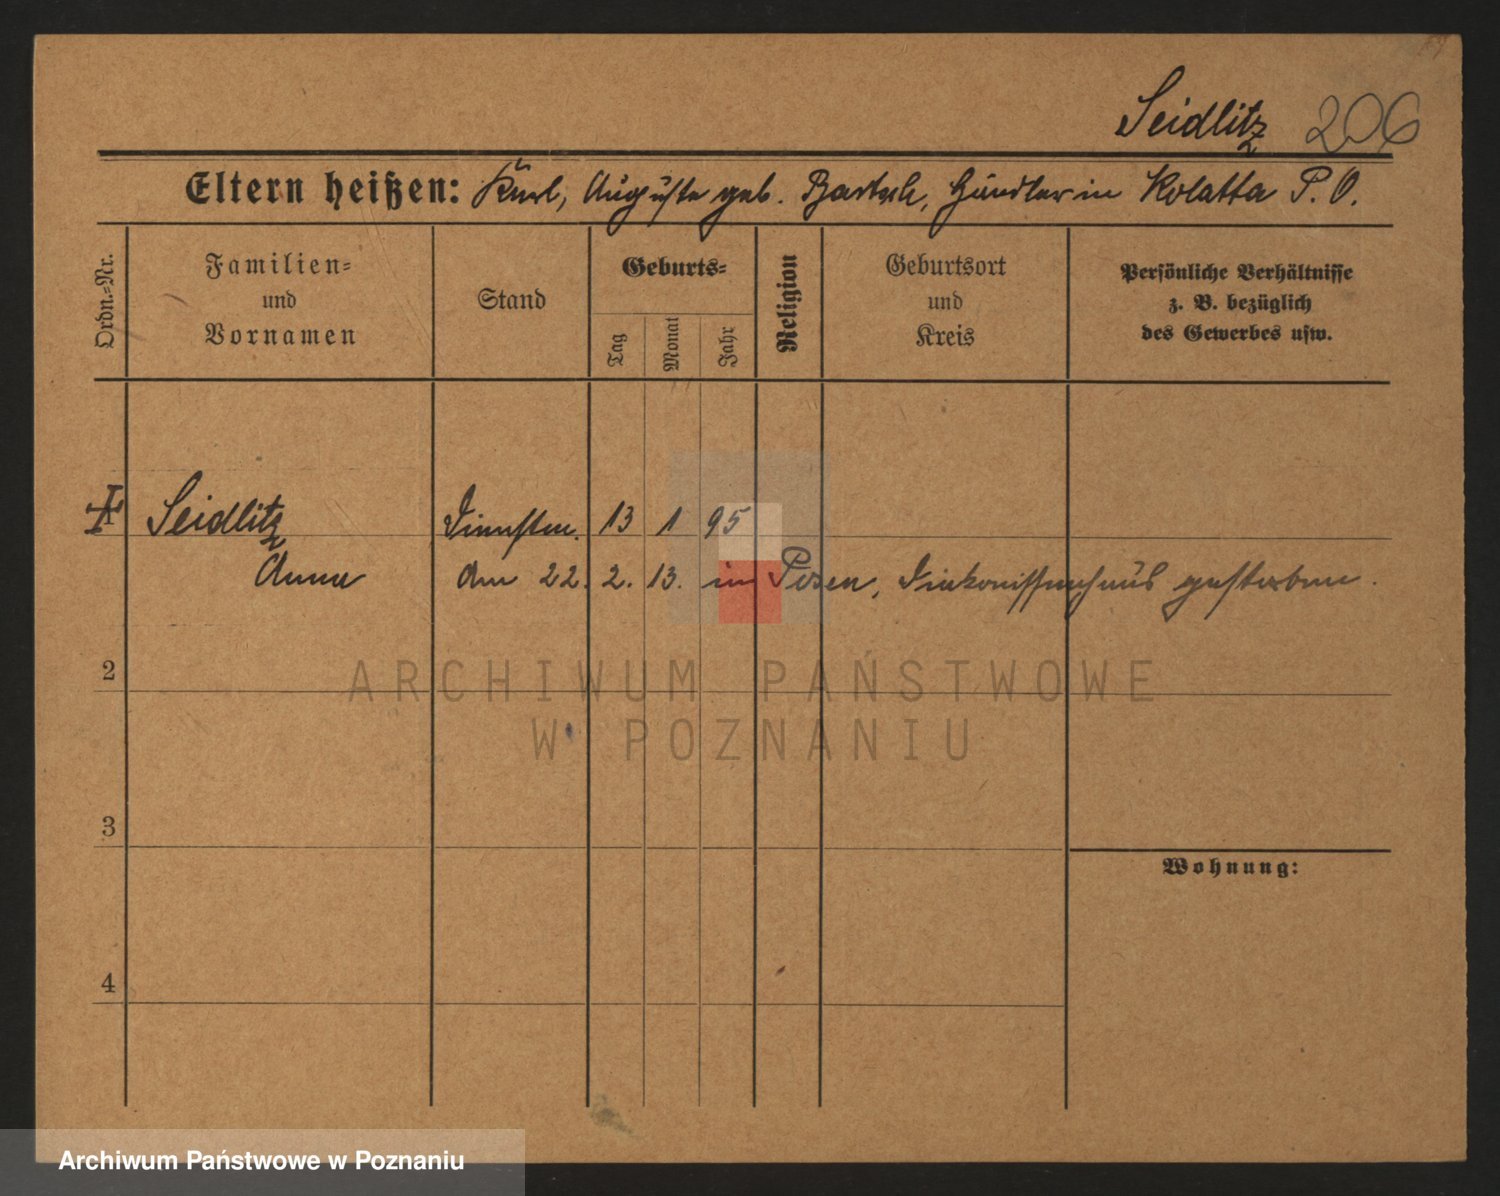 Seidlitz 206
Eltern heißen: Karl, Auguste geb. Bartsch, Händler in Kolatta P. O.
Ordn.=Nr.
Familien=
und
Vornamen
Stand
Geburts=
Tag
Monat
Jahr
Religion
Geburtsort
und
Kreis
Persönliche Verhältnisse
z. B. bezüglich
des Gewerbes usw.
1 Seidlitz 13 1 95
Anna den 22. 2. 13. in Posen, Diakonissenhaus gestorben.
2
3
4
Wohnung:
ARCHIWUM PAŃSTWOWE
W POZNANIU
Archiwum Państwowe w Poznaniu